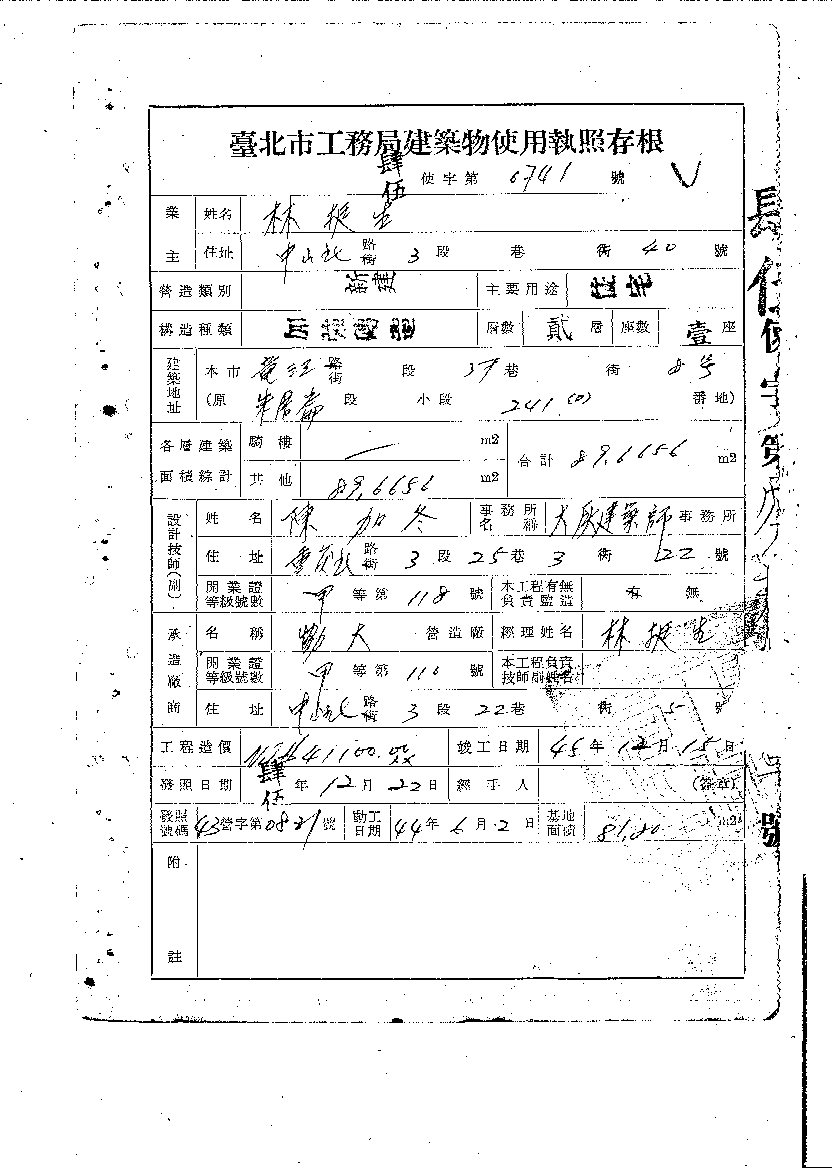 臺北市工務局建築物使用執照存根
肆伍 使字第 0741 號
業主 姓名 林挺生
住址 中山北 路街 3 段 巷 街 40 號
營造類別 新建 主要用途 住宅
構造種類 層數 貳 層 座數 壹 座
建築地址 本市 龍江 路街 段 37 巷 街 8号
(原 朱厝崙 段 小段 241 番地)
各層建築面積綜計 騎樓 — m2 合計 89.6656 m2
其他 89.6656 m2
設計技師(副) 姓名 陳加冬 事務所名稱 建築師 事務所
住址 重慶北 路街 3 段 25 巷 3 街 22 號
開業證等級號數 甲 等第 118 號 本工程有無負責監造 有 無
承造廠商 名稱 勤大 營造廠 經理姓名 林挺生
開業證等級號數 甲 等第 110 號 本工程負責技師副姓名
住址 中山北 路街 3 段 22 巷 街 5 號
工程造價 41100.00 竣工日期 45 年 12 月 15 日
發照日期 肆伍 年 12 月 22 日 經手人 (簽章)
發照號碼 43 營字第 0821 號 動工日期 44 年 6 月 2 日 基地面積 81.00 m2
附註